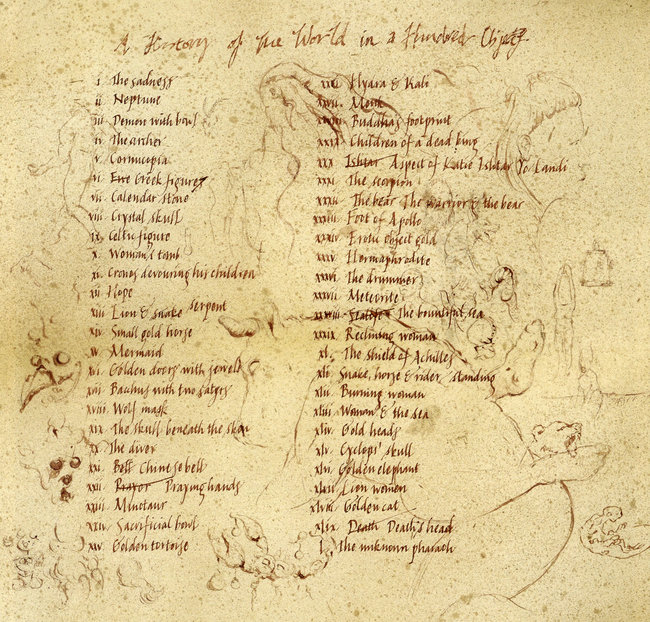 A History of the World in a Hundred Objects
i The sadness
ii Neptune
iii Demon with bowl
iv The archer
v. Cornucopia
vi. Five Greek figures
vii. Calendar stone
viii. Crystal skull
ix. Celtic figure
x. Woman's tomb
xi. Cronos devouring his children
xii Hope
xiii Lion & snake serpent
xiv. Small gold horse
xv. Mermaid
xvi. Golden doors with jewels
xvii. Bachus with two satyrs
xviii. Wolf mask
xix The skull beneath the skin
xx The diver
xxi. Bell Chinese bell
xxii. Prayer Praying hands
xxiii Minotaur
xxiv. Sacrificial bowl
xxv Golden tortoise
xxvi Hydra & Kali
xxvii. Monk
xxviii. Buddha's footprint
xxix Children of a dead king
xxx Ishtar Aspect of Katie Ishtar Yo-Landi
xxxi The scorpion
xxxii. The bear The warrior & the bear
xxxiii. Foot of Apollo
xxxiv Erotic object gold
xxxv. Hermaphrodite
xxxvi The drummer
xxxvii Meteorite
xxxviii The bountiful sea
xxxix. Reclining woman
xl. The shield of Achilles
xli Snake, horse & rider standing
xlii. Burning woman
xliii. Woman & the sea
xliv. Gold heads
xlv. Cyclops' skull
xlvi. Golden elephant
xlvii Lion women
xlviii Golden cat
xlix Death Death's head
l. The unknown pharaoh